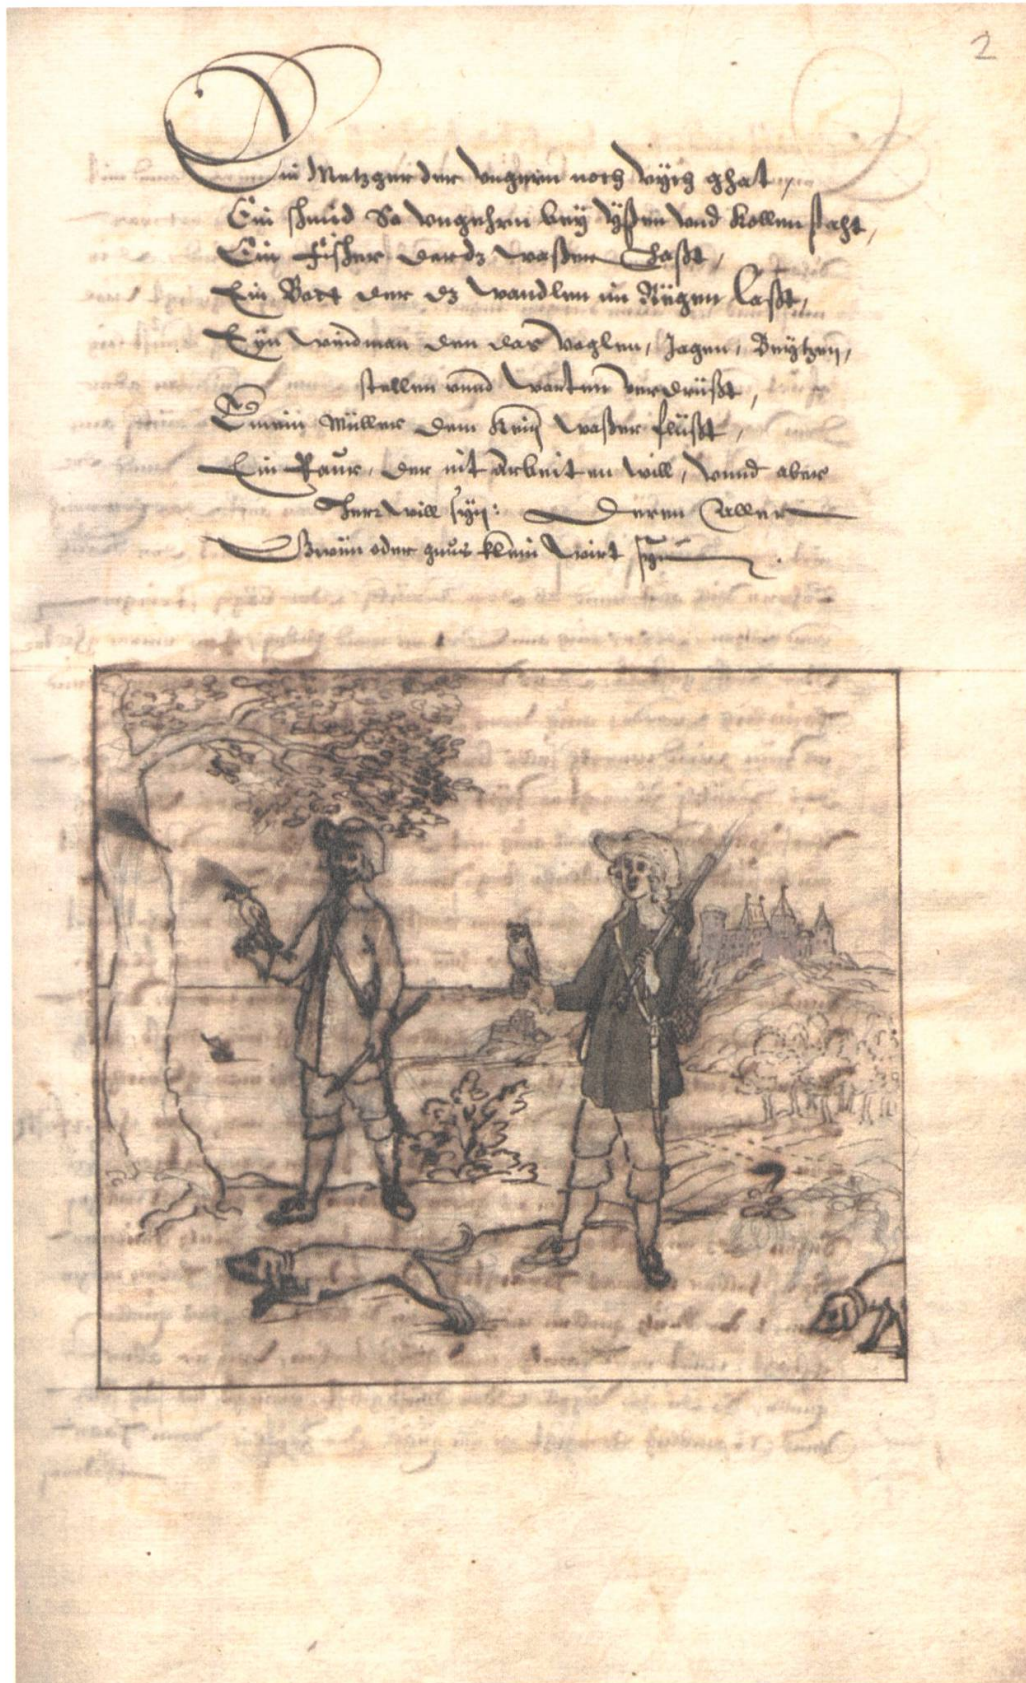 2
Ein Metzger der ungern noch Vych ghat,
Ein schmid So ungehrn bey Yßen und Kollen staht,
Ein Fischer der dz waßer Haßt,
Ein Bott der dz wandlen im Rägen Laßt,
Eyn weidman den das Voglen, Jagen, Beytzen,
stellen unnd warten verdrüßt,
Einem Müller dem Kein waßer flüßt,
Ein Paur, der nit Arbeiten will, unnd aber
Herr will syn: Deren Aller
gwün oder gnuß klein wirt syn